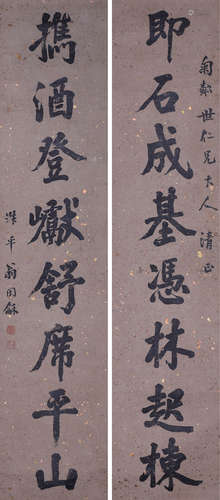 即石成基憑林起棟
世仁兄大人清正
攜酒登巘舒席平山
翁同龢